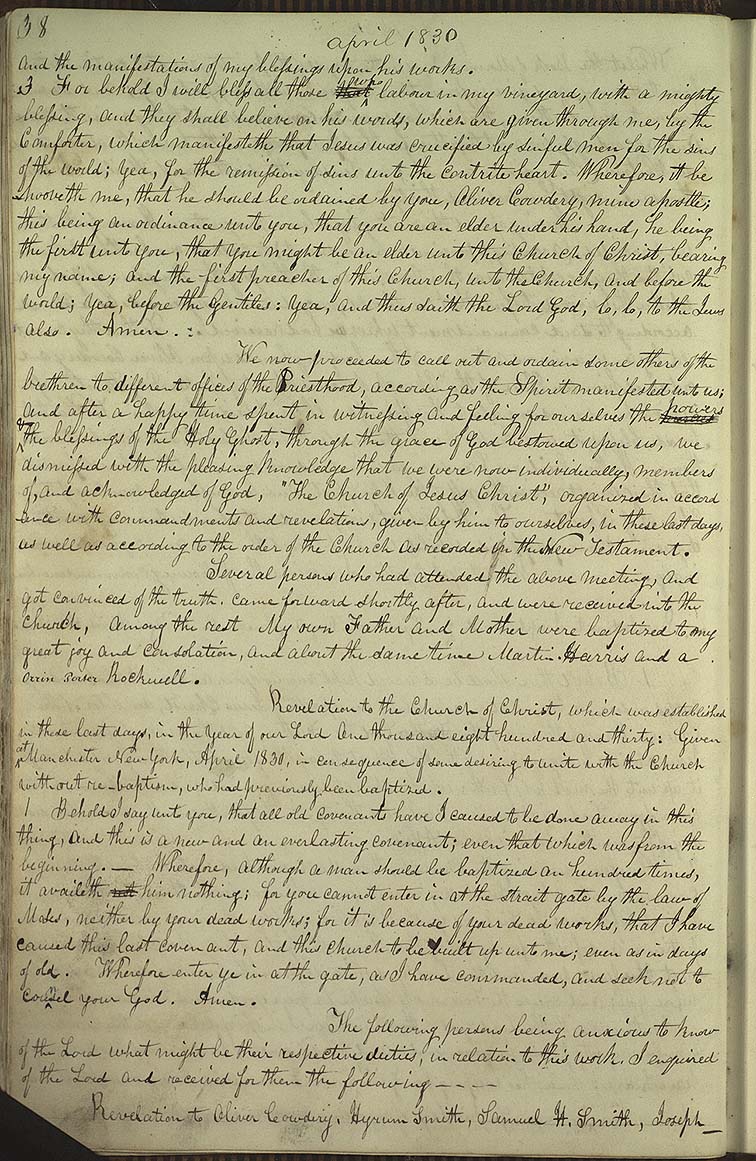 38
april 1830
and the manifestations of my blessings upon his works.
3 For behold I will bless all those that who labour in my vineyard, with a mighty
blessing, and they shall believe on his words, which are given through me, by the
Comforter, which manifesteth that Jesus was crucified by sinful men for the sins
of the world; Yea, for the remission of sins unto the contrite heart. Wherefore, it be
-hooveth me, that he should be ordained by you, Oliver Cowdery, mine apostle;
this being an ordinance unto you, that you are an elder under his hand, he being
the first unto you, that you might be an elder unto this Church of Christ, bearing
my name; and the first preacher of this Church, unto the Church, and before the
world; Yea, before the Gentiles: Yea, and thus saith the Lord God, lo, lo, to the Jews
also. Amen. :
We now proceeded to call out and ordain some others of the
brethren to different offices of the Priesthood, according as the Spirit manifested unto us;
and after a happy time spent in witnessing and feeling for ourselves the powers
& the blessings of the Holy Ghost, through the grace of God bestowed upon us, we
dismissed with the pleasing knowledge that we were now individually, members
of, and acknowledged of God, "The Church of Jesus Christ", organized in accord
ance with commandments and revelations, given by him to ourselves, in these last days,
as well as according to the order of the Church as recorded in the New Testament.
Several persons who had attended the above meeting, and
got convinced of the truth. came forward shortly after, and were received into the
church, among the rest My own Father and Mother were baptized to my
great joy and consolation, and about the same time Martin Harris and a
Orrin Porter Rockwell.
Revelation to the Church of Christ, which was established
in these last days, in the Year of our Lord One thousand eight hundred and thirty: Given
at Manchester New York, April 1830, in consequence of some desiring to unite with the Church
without re-baptism, who had previously been baptized.
1 Behold I say unto you, that all old covenants have I caused to be done away in this
thing, and this is a new and an everlasting covenant; even that which was from the
beginning. — Wherefore, although a man should be baptized an hundred times,
it availeth him nothing; for you cannot enter in at the strait gate by the law of
Moses, neither by your dead works; for it is because of your dead works, that I have
caused this last covenant, and this church to be built up unto me; even as in days
of old. Wherefore enter ye in at the gate, as I have commanded, and seek not to
counsel your God. Amen.
The following persons being anxious to know
of the Lord what might be their respective duties, in relation to this work, I enquired
of the Lord and received for them the following — — —
Revelation to Oliver Cowdery, Hyrum Smith, Samuel H. Smith, Joseph